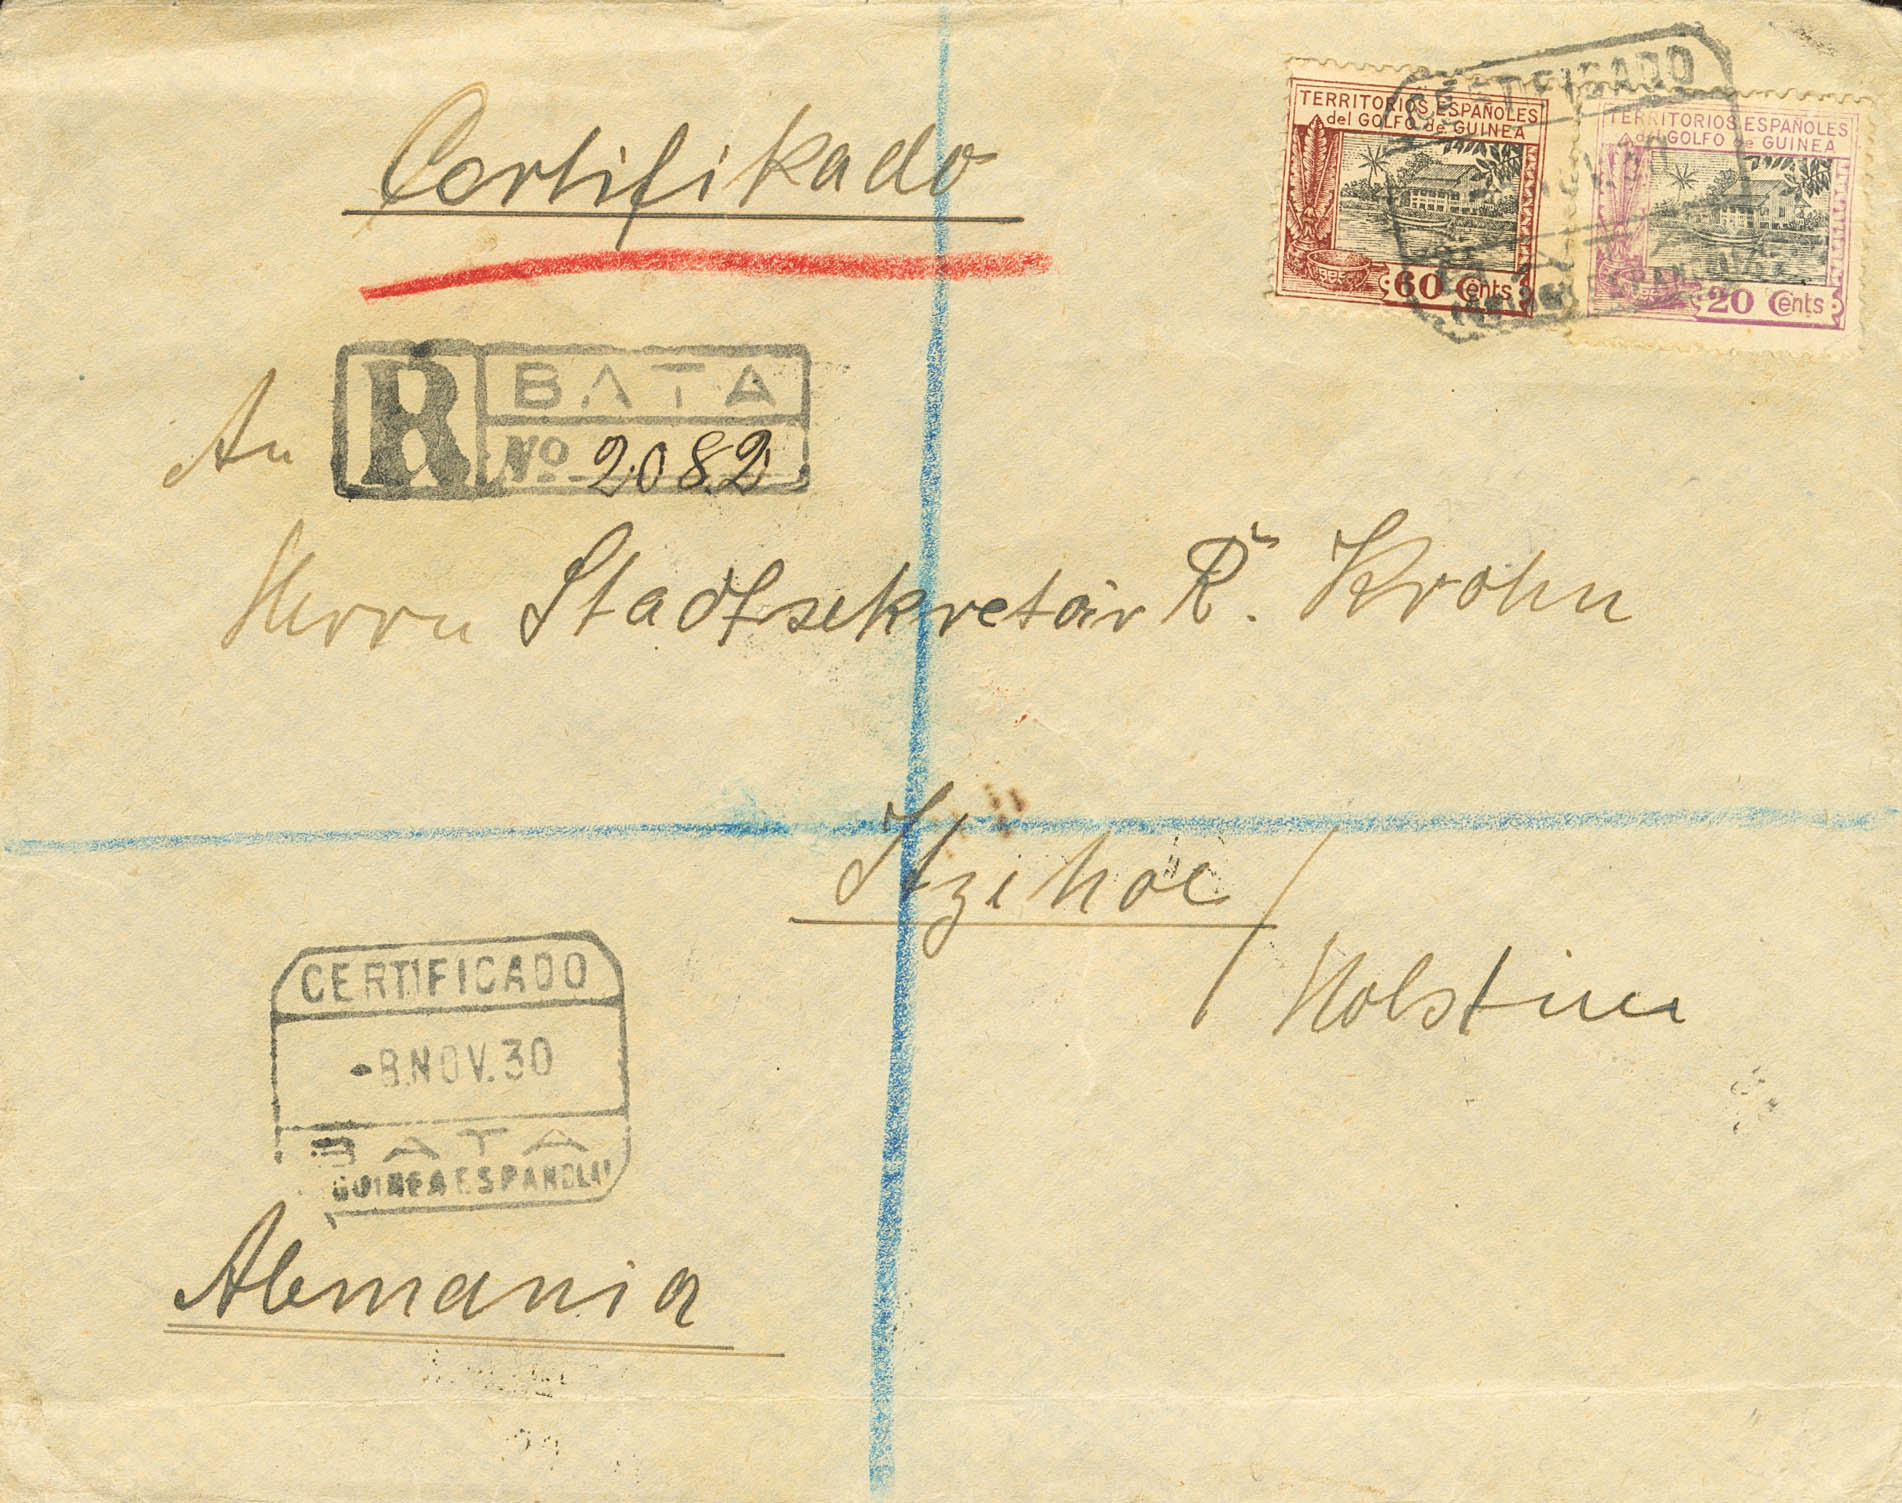 Certifikado
TERRITORIOS ESPAÑOLES
del GOLFO de GUINEA
60 Cents
TERRITORIOS ESPAÑOLES
del GOLFO de GUINEA
20 Cents
CERTIFICADO
R BATA
Nº 2082
An
Herrn Stadtsekretär R. Krohn
Itzehoe /
Holstein
CERTIFICADO
-8.NOV.30
BATA
GUINEA ESPAÑOLA
Alemania